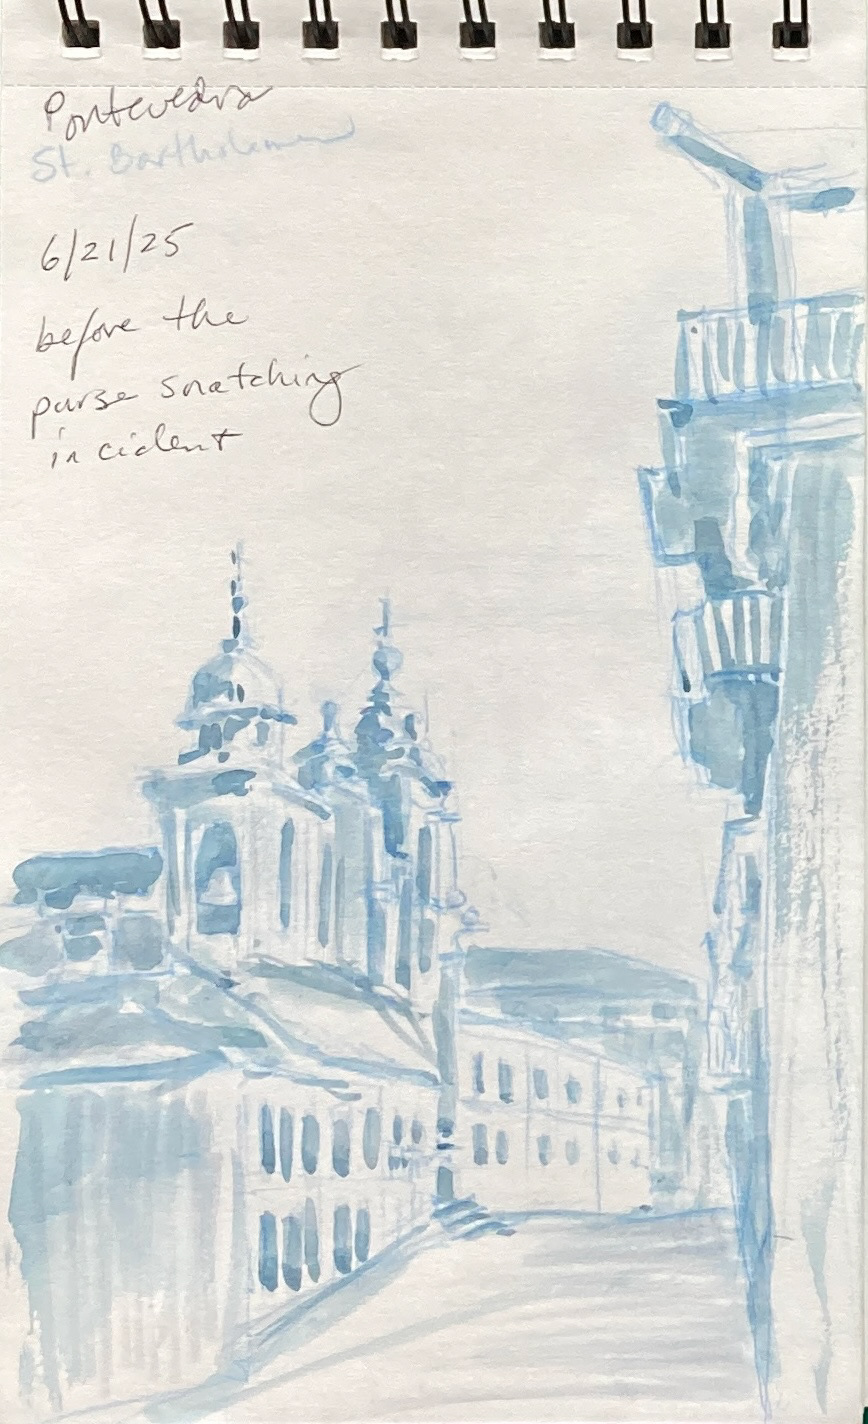 Pontevedra
St. Bartholomew
6/21/25
before the
purse snatching
incident